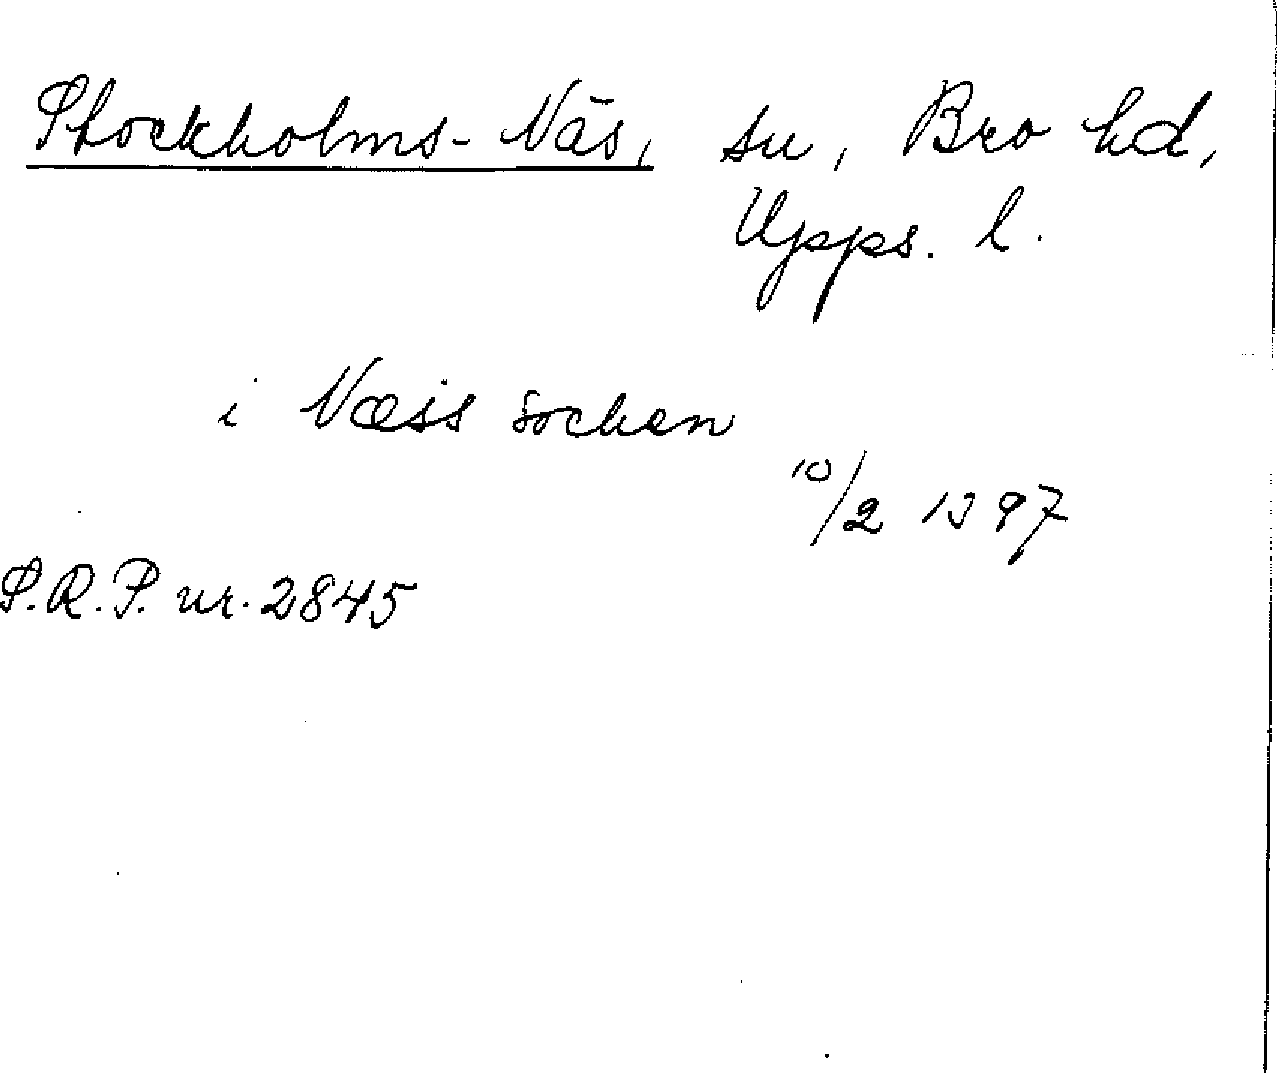 Stockholms-Näs, sn, Bro hd,
Upps. l.
i Næss socken
10/2 1397
S.R.P. nr. 2845